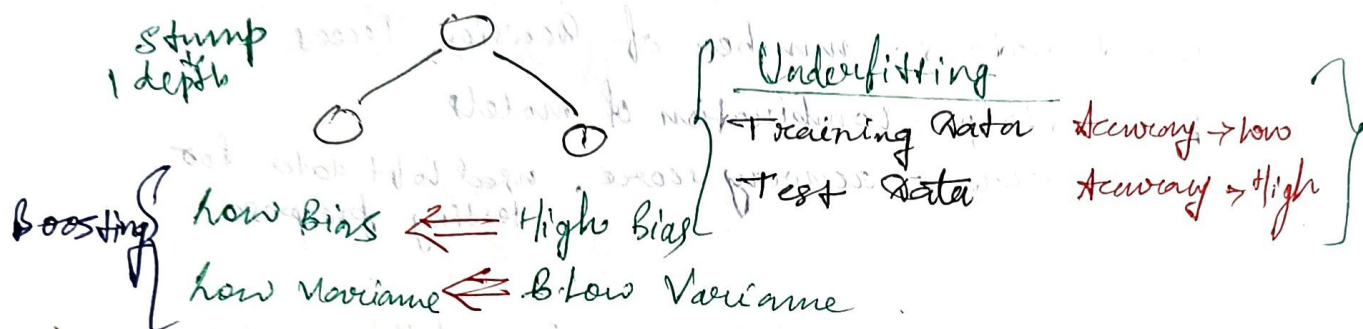 stump
1 depth
Underfitting
Training Data Accuracy → Low
Test Data Accuracy → High
Boosting
Low Bias ⇐ High Bias
Low Variance ⇐ Low Variance